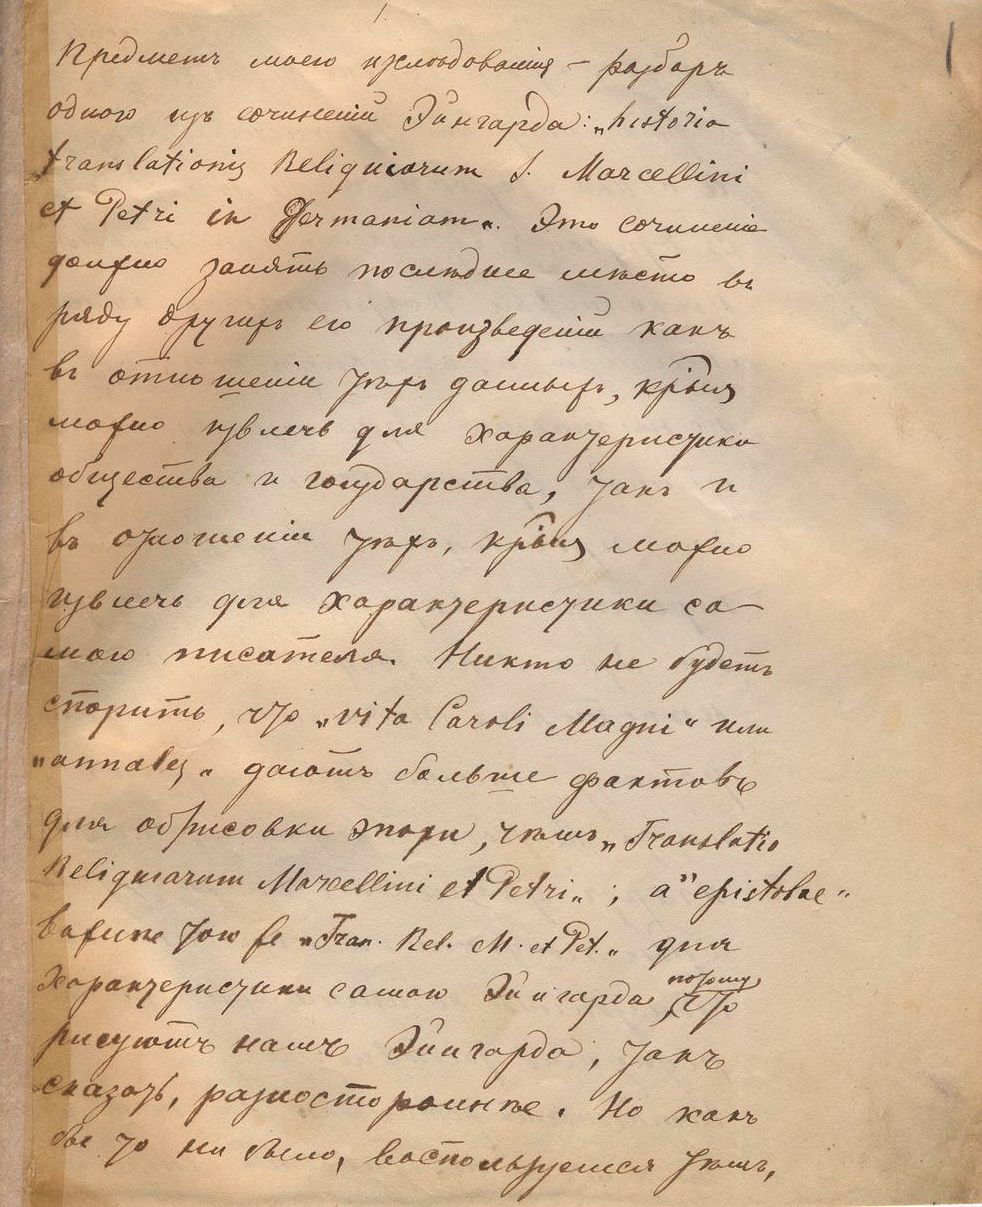 1.
Предметъ моего изслѣдованія – разборъ
одного изъ сочиненій Эйнгарда: „historia
translationis Reliquiarum S. Marcellini
et Petri in Germaniam“. Это сочиненіе
должно занять послѣднее мѣсто въ
ряду другихъ его произведеній какъ
въ отношеніи тѣхъ данныхъ, крыя
можно извлечь для характеристики
общества и государства, такъ и
въ отношеніи тѣхъ, крыя можно
извлечь для характеристики са-
мого писателя. Никто не будетъ
спорить, что „vita Caroli Magni“ или
„annales“ даютъ больше фактовъ
для обрисовки эпохи, чѣмъ „Translatio
Reliquiarum Marcellini et Petri“; а „epistolae“
важнѣе того же „Tran. Rel. M. et Pet.“ для
характеристики самого Эйнгарда, потому что
рисуютъ намъ Эйнгарда, такъ
сказать, разностороннѣе. Но какъ
бы то ни было, воспользуемся тѣмъ,